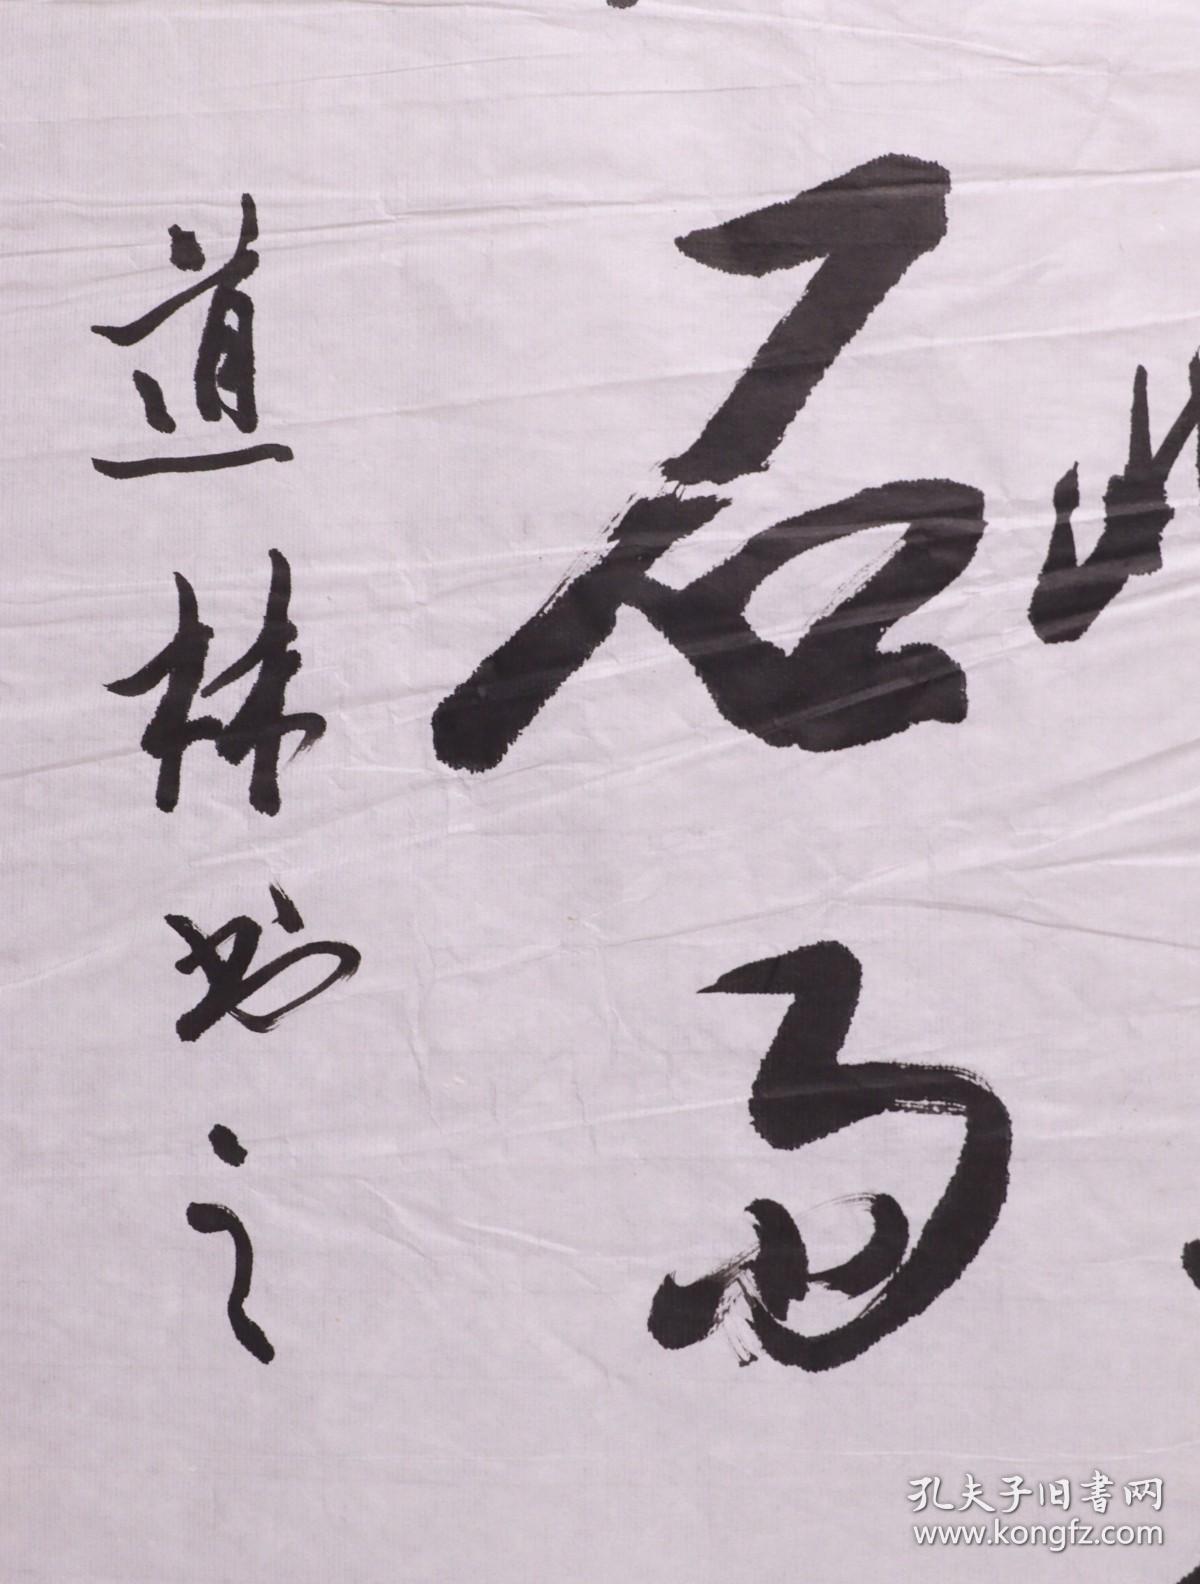 石
道林书之
孔夫子旧書网
www.kongfz.com